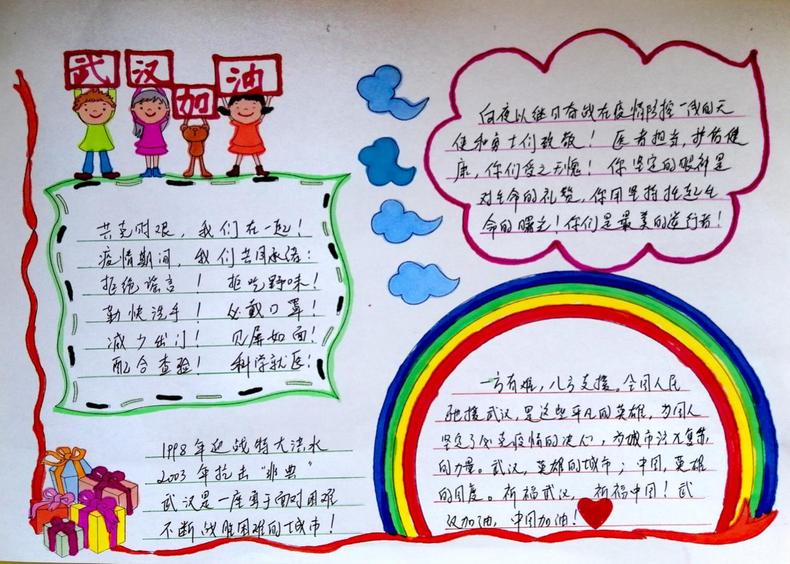 武汉加油
共克时艰，我们在一起！
疫情期间，我们共同承诺：
拒绝谣言！ 拒吃野味！
勤快洗手！ 必戴口罩！
减少出门！ 见屏如面！
配合查验！ 科学就医！
1998年迎战特大洪水
2003年抗击“非典”
武汉是一座勇于面对困难
不断战胜困难的城市！
向夜以继日奋战在疫情防控一线的天
使和勇士们致敬！ 医者担当，护佑健
康，你们受之无愧！ 你坚定的眼神是
对生命的礼赞，你用坚持托起生
命的曙光！你们是最美的逆行者！
一方有难，八方支援。全国人民
驰援武汉，是这些平凡的英雄，为国人
坚定了必克疫情的决心，为城市注入复苏
的力量。武汉，英雄的城市；中国，英雄
的国度。祈福武汉， 祈福中国！武
汉加油，中国加油！